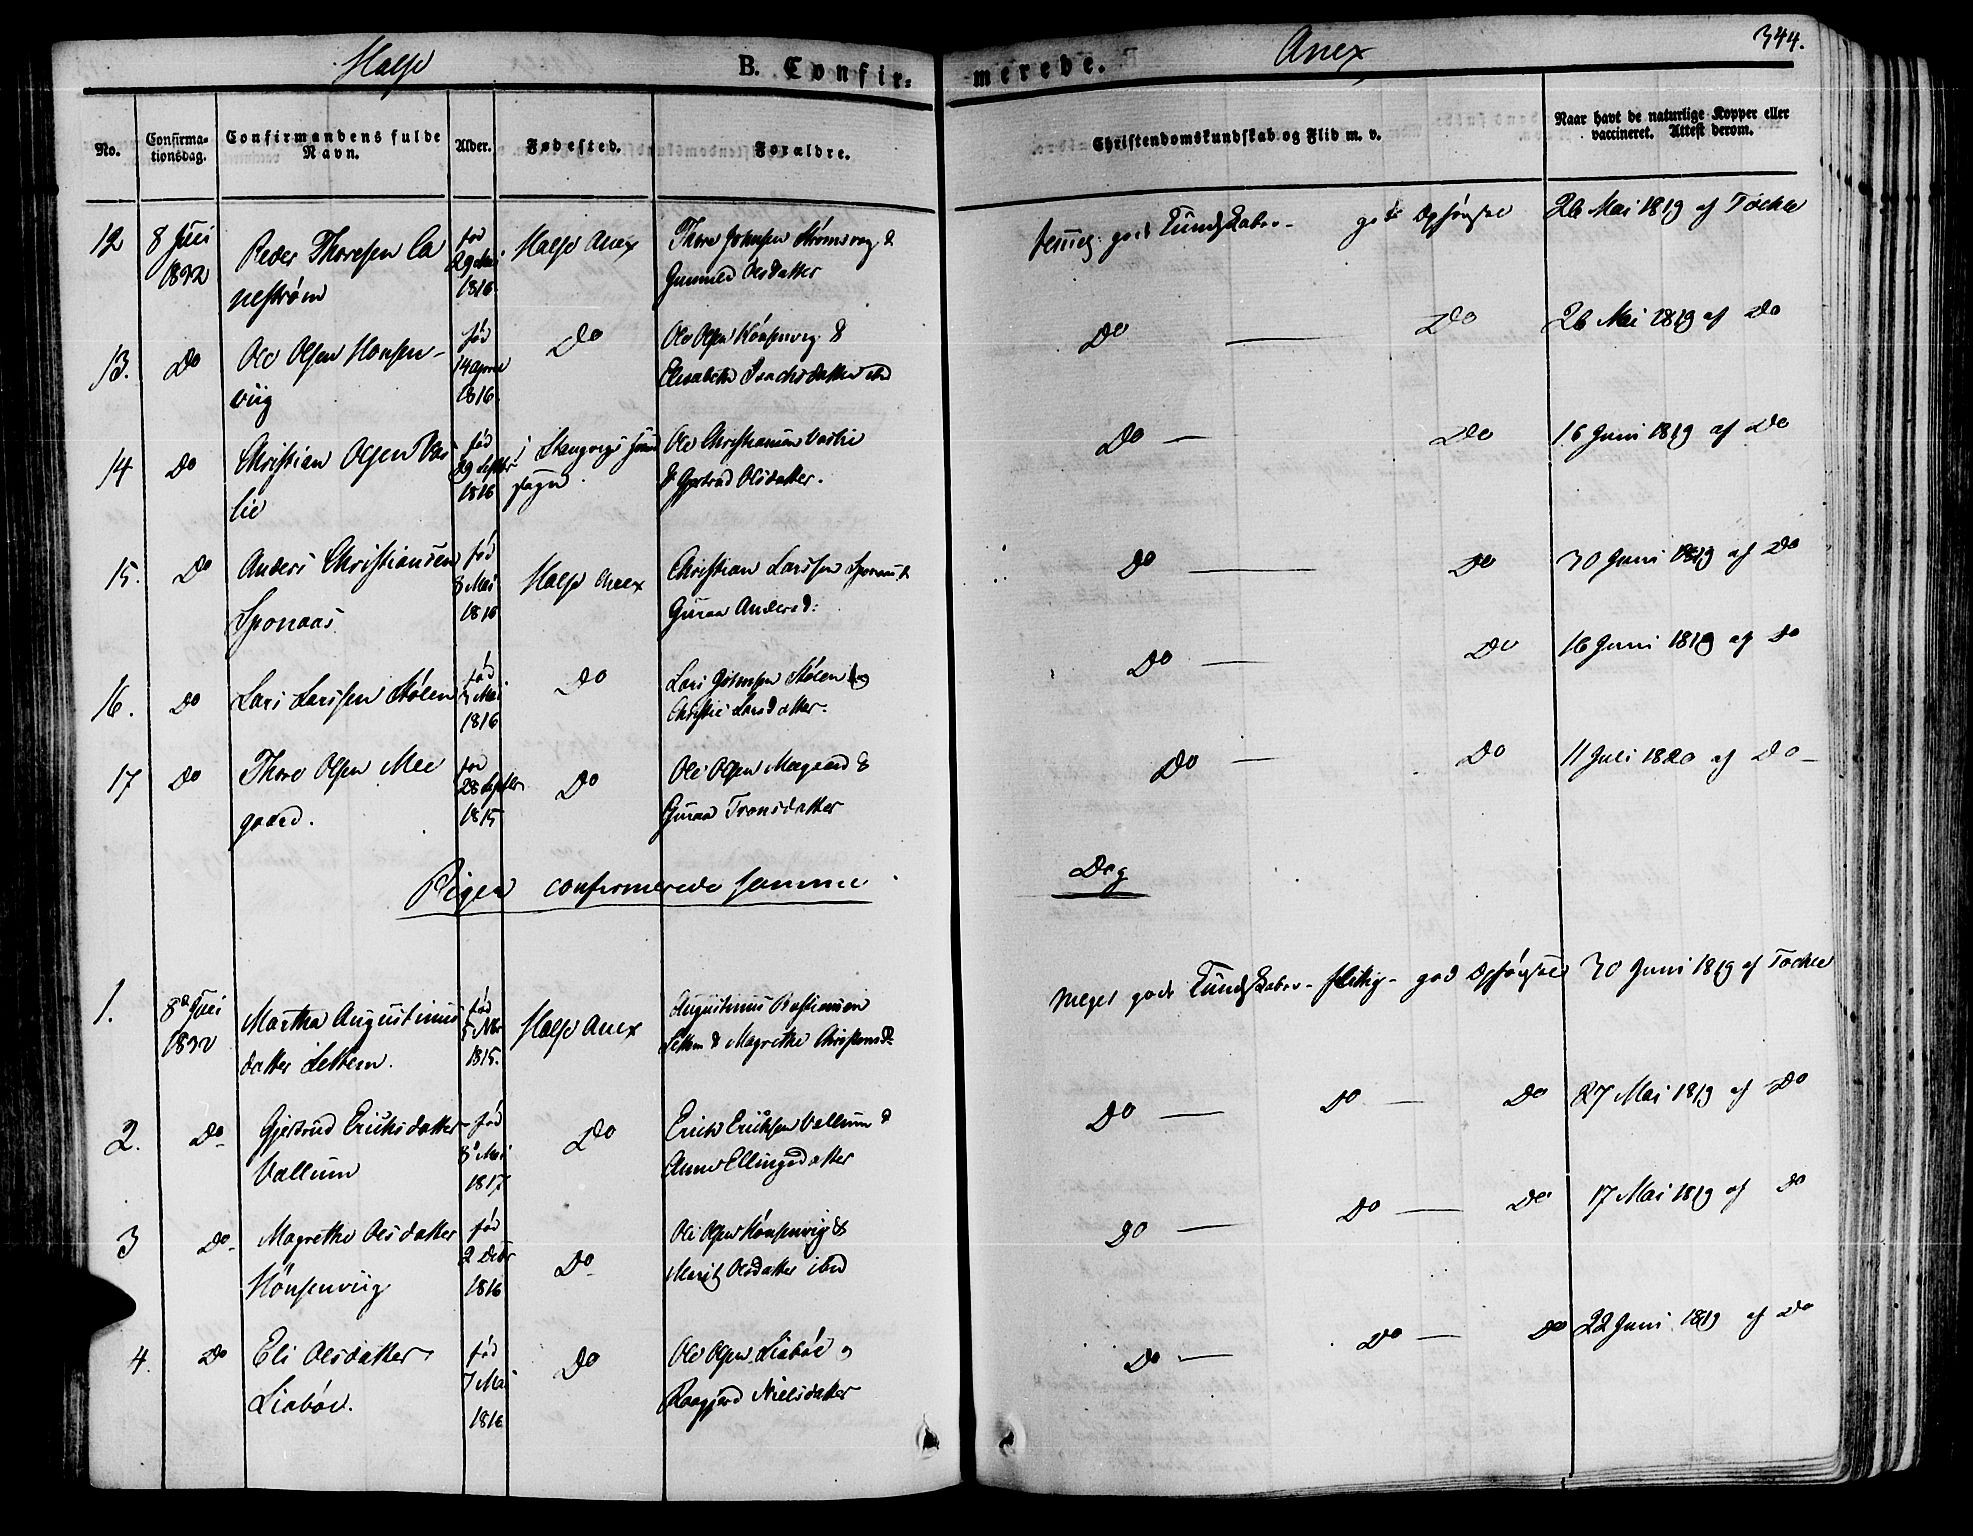 Halse
B. Confir-
merede.
Anex
344.
No.
Confirma-
tionsdag.
Confirmandens fulde
Navn.
Alder.
Fødested.
Forældre.
Christendomskundskab og Flid m. v.
Naar havt de naturlige Kopper eller
vaccineret. Attest derom.
12
8 Juli
1832
Peder Thoresen Ca
nestrøm
fød
29 Mai
1816
Halse Anex
Thore Johnsen Strømsvag &
Gunnild Olsdatter
temmel. gode Kundskaber - god Opførsel
26 Mai 1819 af Tockle
13.
Do
Ole Olsen Honsen-
viig
fød
14 April
1816.
Do
Ole Olsen Hónsenvig &
Elisabeth Isachsdatter ibd
Do — Do
26 Mai 1819 af Do
14
Do
Christian Olsen Var
lie
fød
29 Septbr
1816
i Stangvigs
sogn
Ole Christiansen Varlie
& Gjertrud Olsdatter.
Do — Do
16 Juni 1819 af Do
15.
Do
Anders Christiansen
Sponaas
fød
8 Mai
1816
Halse Anex
Christian Larssen Sponaas &
Guraa Andersd:
Do — Do
30 Juni 1819 af Do
16.
Do
Lars Larssen Stølen
fød
Mai
1816
Do
Lars Stølen og
Christie Larsdatter
Do — Do
16 Juni 1819 af Do
17
Do
Thore Olsen Mee
gaard.
fød
28 Septbr
1815
Do
Ole Olsen Meegaard &
Guraa Tronsdatter
Do — Do
11 Juli 1820 af Do -
Piger confirmerede samme
Dag
1.
8de Juli
1832
Martha Augustinus
datter Settem.
fød
5 Nbr
1815.
Halse Anex
Augustinus Bastiansen
Settem & Magrethe Christensd
Meget gode Kundskaber - flittig - god Opførsel
30 Juni 1819 af Tockle
2.
Do
Gjertrud Ericksdatter
Vallum
fød
8 Mai
1817
Do
Erick Ericksen Vallum &
Anne Ellingsdatter
Do — Do — Do
27 Mai 1819 af Do
3
Do
Magrethe Olsdatter
Hónsenviig
fød
2 Debr
1816
Do
Ole Olsen Hónsenvig &
Marit Olsdatter ibd
Do — Do — Do
17 Mai 1819 af Do
4.
Do
Eli Olsdatter
Liabøe.
fød
7 Mai
1816
Do
Ole Olsen Liabøe og
Raagjerd Nielsdatter
Do — Do — Do
22 Juni 1819 af Do